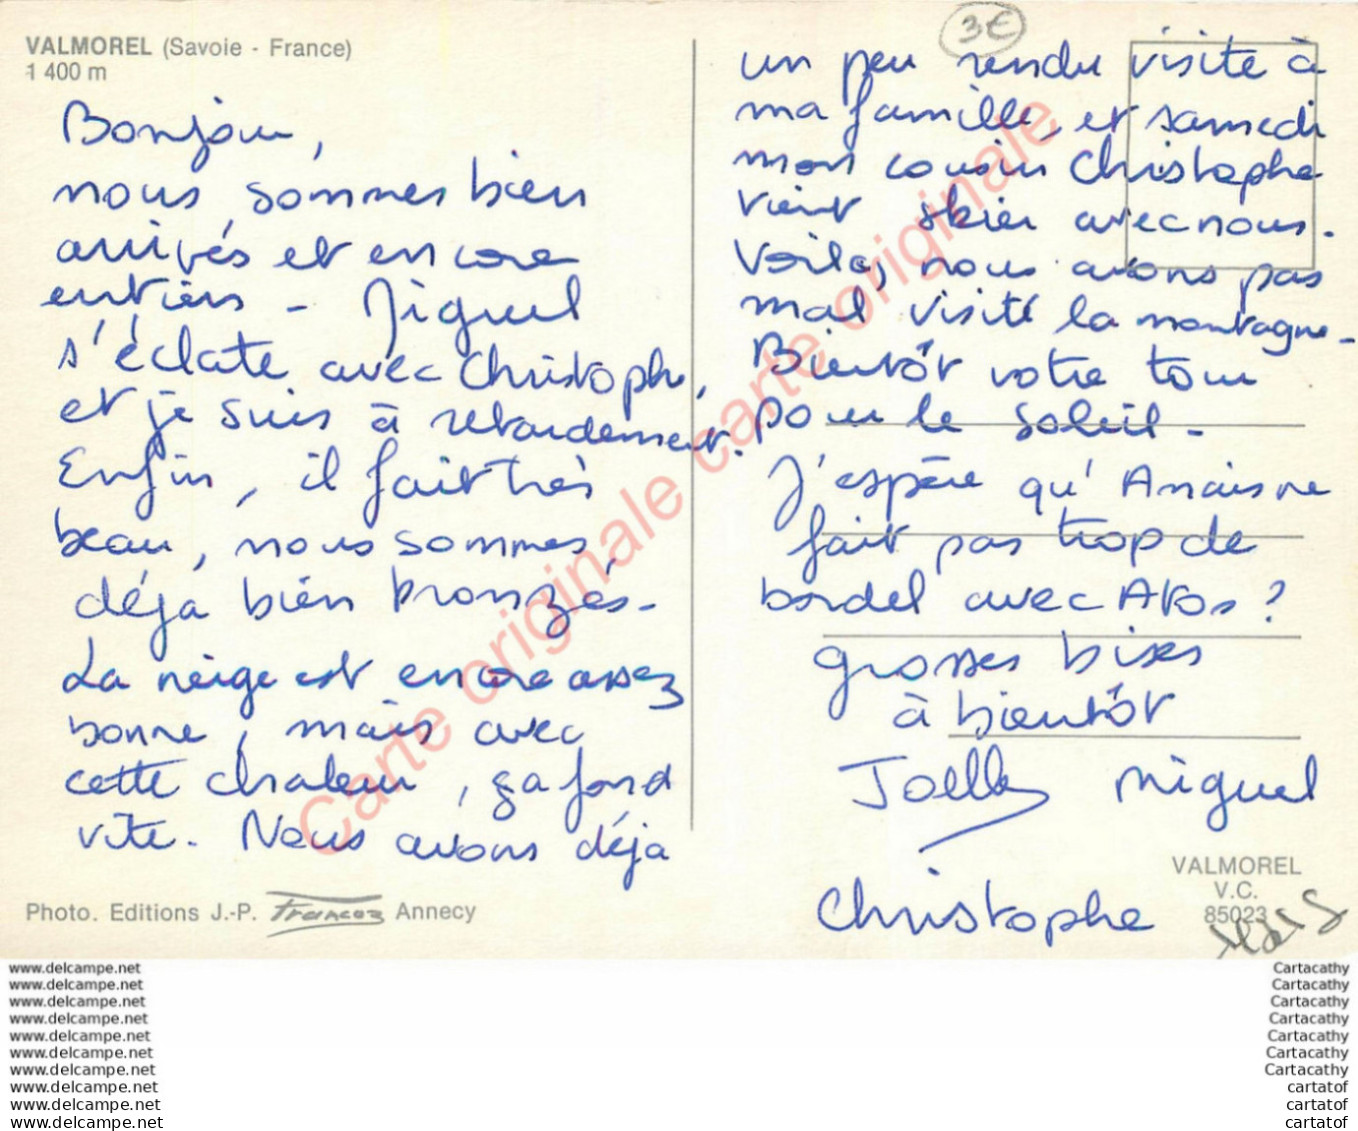 VALMOREL (Savoie - France)
1 400 m
Bonjour,
nous sommes bien
arrivés et encore
entiers - Miguel
s'éclate avec Christophe,
et je suis à retardement.
Enfin, il fait très
beau, nous sommes
déjà bien bronzés -
La neige est encore assez
bonne, mais avec
cette chaleur, ça fond
vite. Nous avons déjà
Photo. Editions J.-P. Francoz Annecy
3€
un peu rendu visite à
ma famille, et samedi
mon cousin Christophe
vient skier avec nous.
Voilà, nous avons pas
mal visité la montagne -
Bientôt votre tour
pour le soleil -
J'espère qu'Anaïs ne
fait pas trop de
bordel avec Atos ?
grosses bises
à bientôt
Joelle Miguel
Christophe
VALMOREL
V.C.
85023
Carte originale carte originale carte originale
www.delcampe.net
www.delcampe.net
www.delcampe.net
www.delcampe.net
www.delcampe.net
www.delcampe.net
www.delcampe.net
www.delcampe.net
www.delcampe.net
www.delcampe.net
Cartacathy
Cartacathy
Cartacathy
Cartacathy
Cartacathy
Cartacathy
Cartacathy
cartatof
cartatof
cartatof